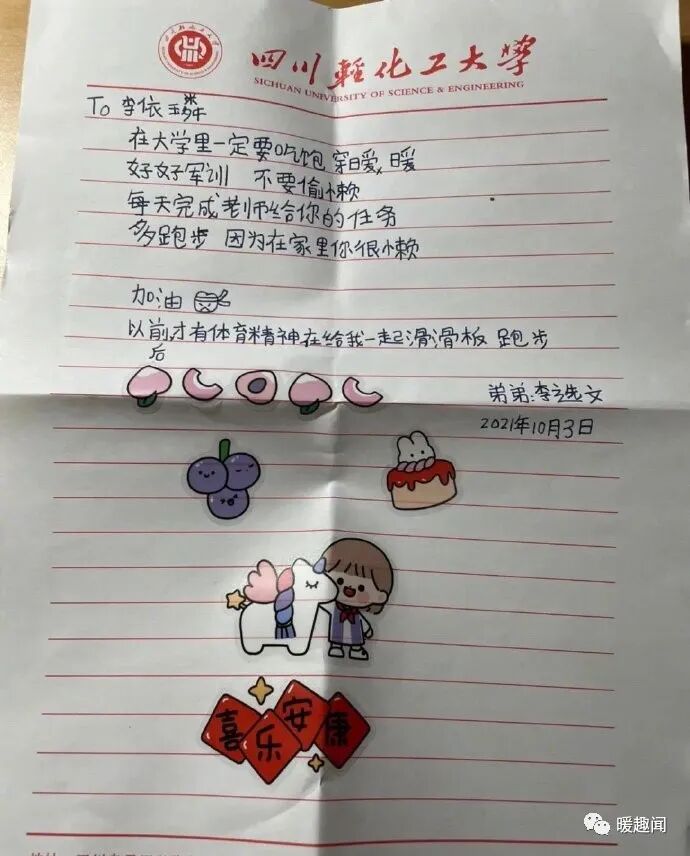 四川轻化工大学
SICHUAN UNIVERSITY OF SCIENCE & ENGINEERING
To 李依璘
在大学里一定要吃饱 穿暖 暖
好好军训 不要偷懒
每天完成老师给你的任务
多跑步 因为在家里你很懒
加油
以前才有体育精神在给我一起滑滑板 跑步
后
弟弟:李选文
2021年10月3日
喜乐安康
暖趣闻